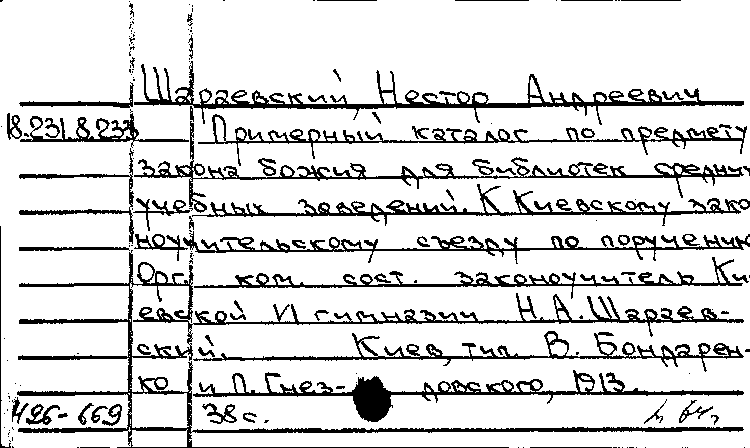 Шараевский, Нестор Андреевич
18.231.8.233 Примерный каталог по предмету
закона божия для библиотек средних
учебных заведений. К Киевскому зако-
ноучительскому съезду по поручению
Орг. ком. сост. законоучитель Ки-
евской И гимназии Н. А. Шараев-
ский. Киев, тип. В. Бондарен-
ко и П. Гнез- довского, 1913.
496-669 38 с.